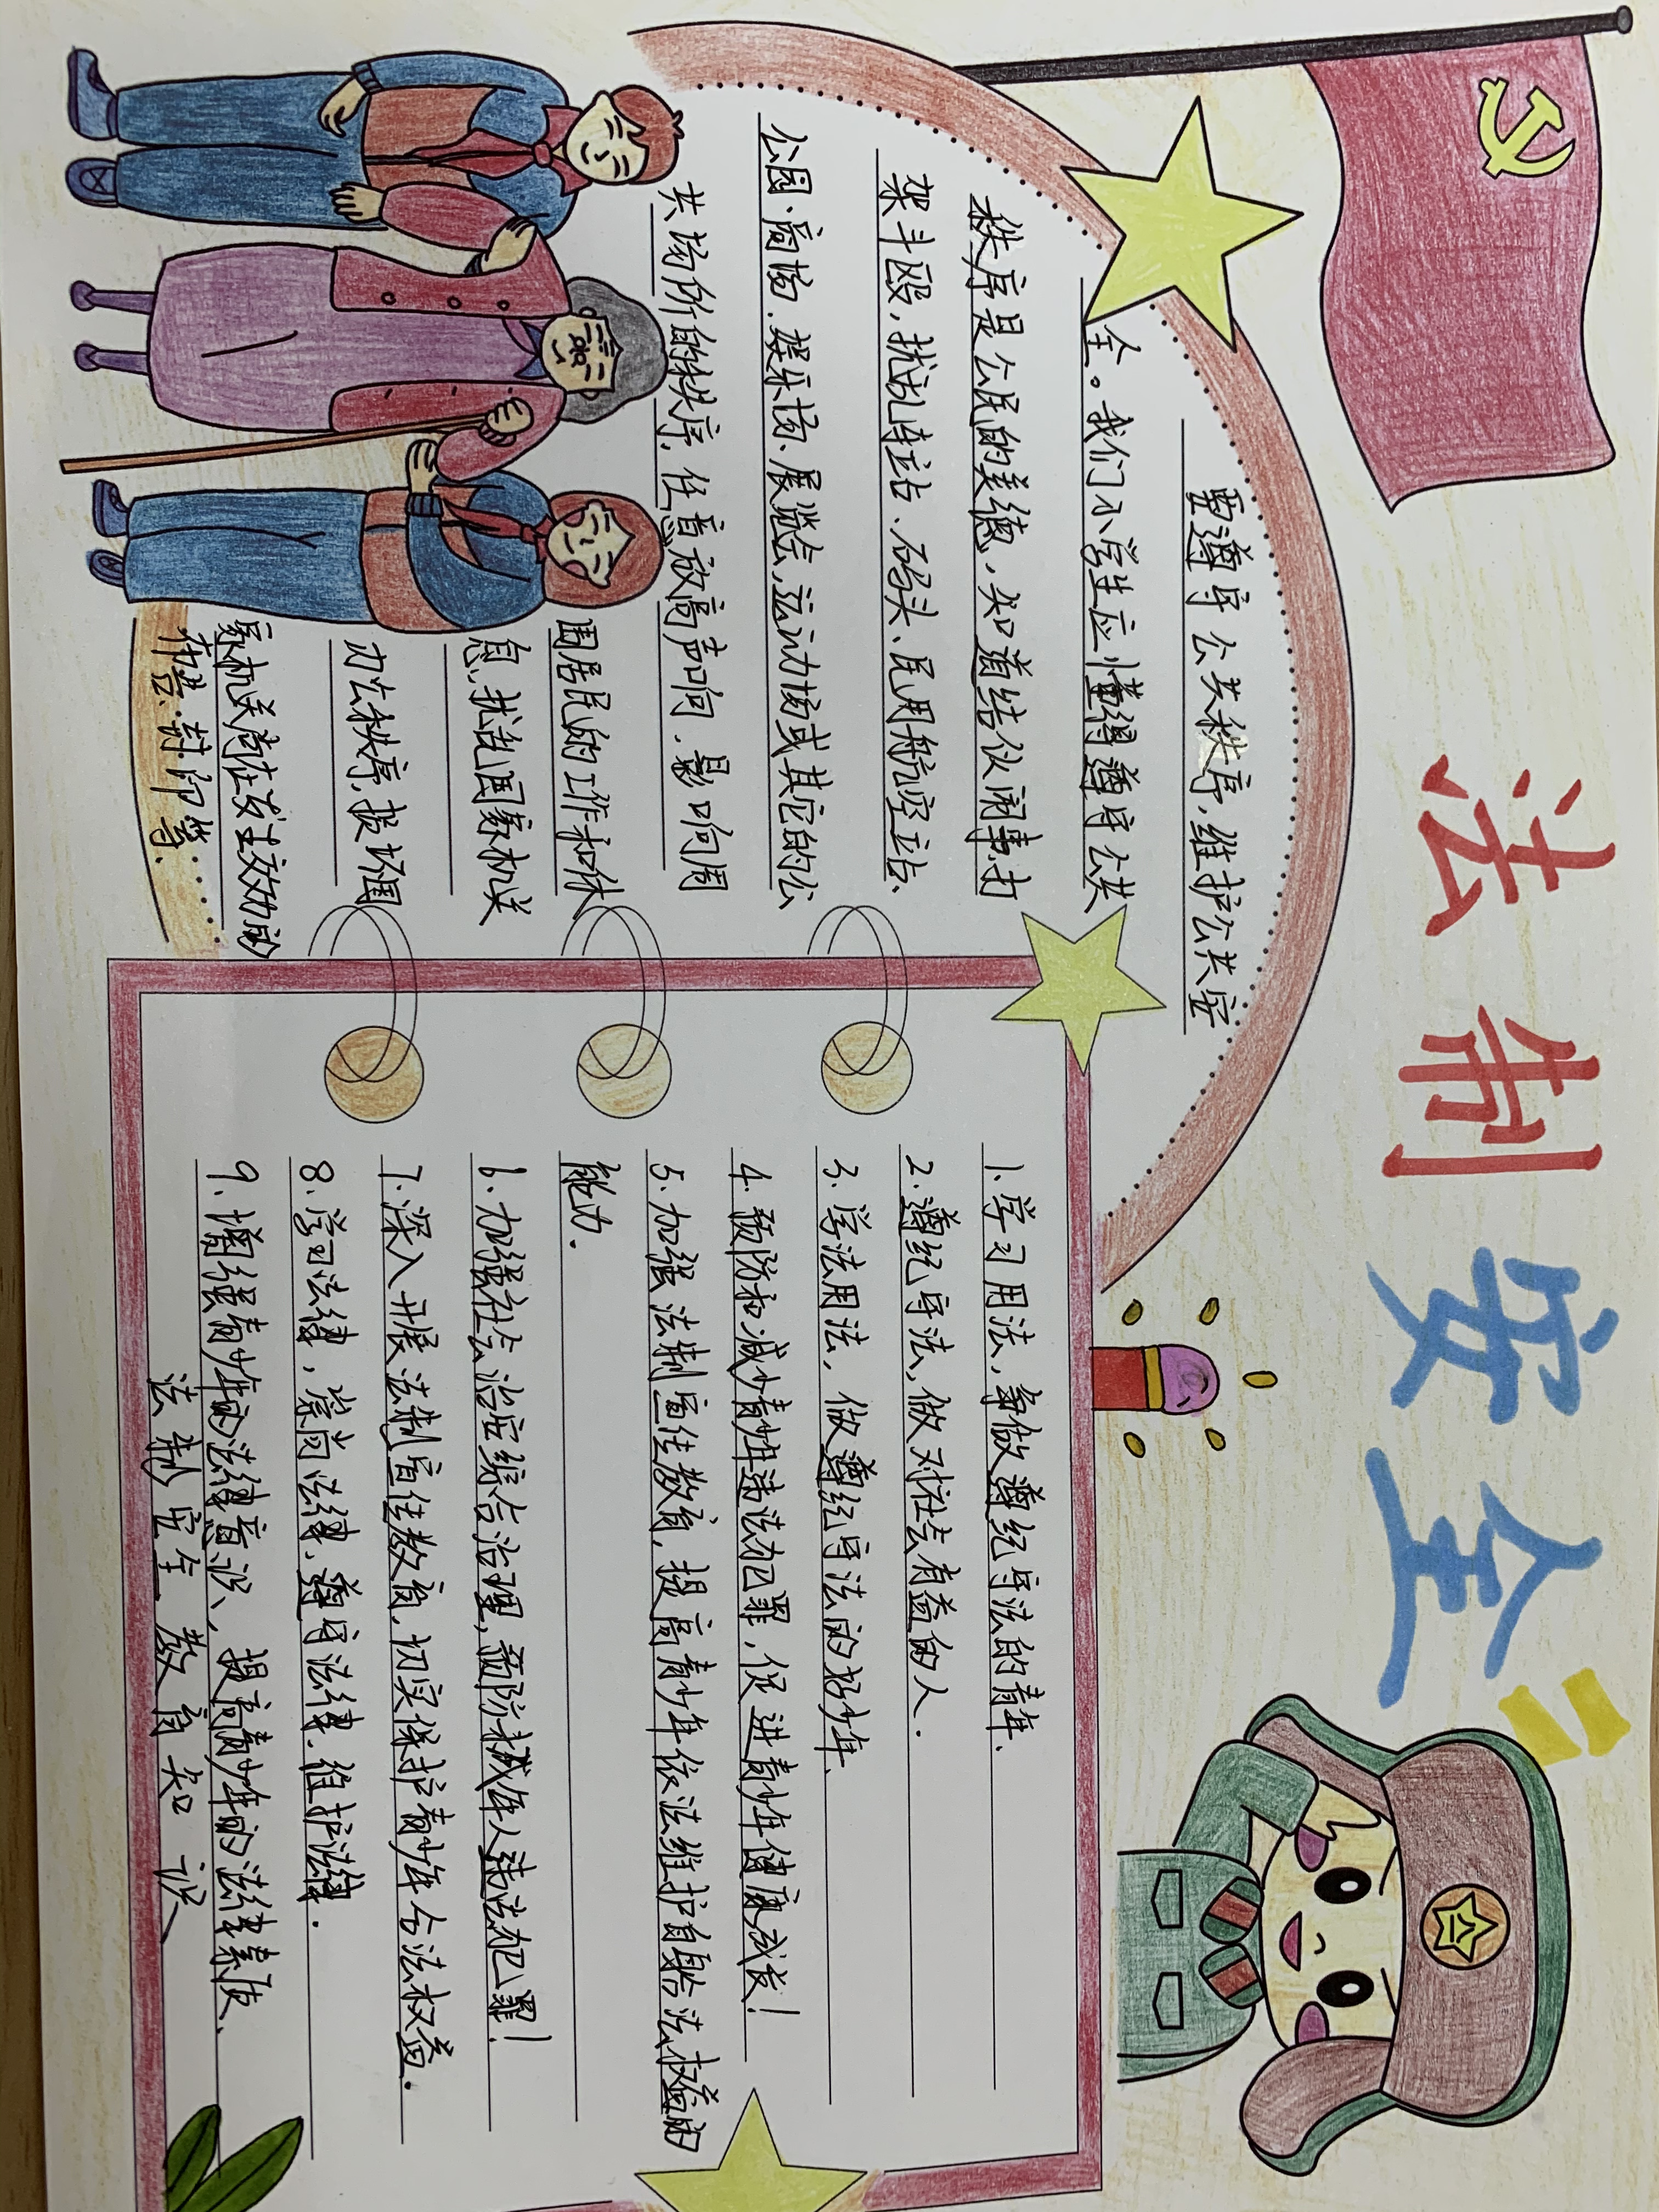 法制安全
要遵守公共秩序,维护公共安
全。我们小学生应懂得遵守公共
秩序是公民的美德,知道结伙闹事、打
架斗殴,扰乱车站、码头、民用航空站、
公园、商场、娱乐场、展览会,运动场或其它的公
共场所的秩序,任意放高声响,影响周
围居民的工作和休
息,扰乱国家机关
办公秩序,损坏国
家机关尚在发生效力的
布告、封印等、
1.学习用法,争做遵纪守法的青年、
2.遵纪守法,做对社会有益的人.
3.学法用法,做遵纪守法的好少年、
4.预防和减少青少年违法犯罪,促进青少年健康成长!
5.加强法制宣传教育,提高青少年依法维护自身合法权益的
能力.
6.加强社会治安综合治理,预防未成年人违法犯罪!
7.深入开展法制宣传教育,切实保护青少年合法权益.
8.学习法律,崇尚法律、遵守法律、维护法律.
9.增强青少年的法律意识、提高青少年的法律素质、
法制安全教育知识